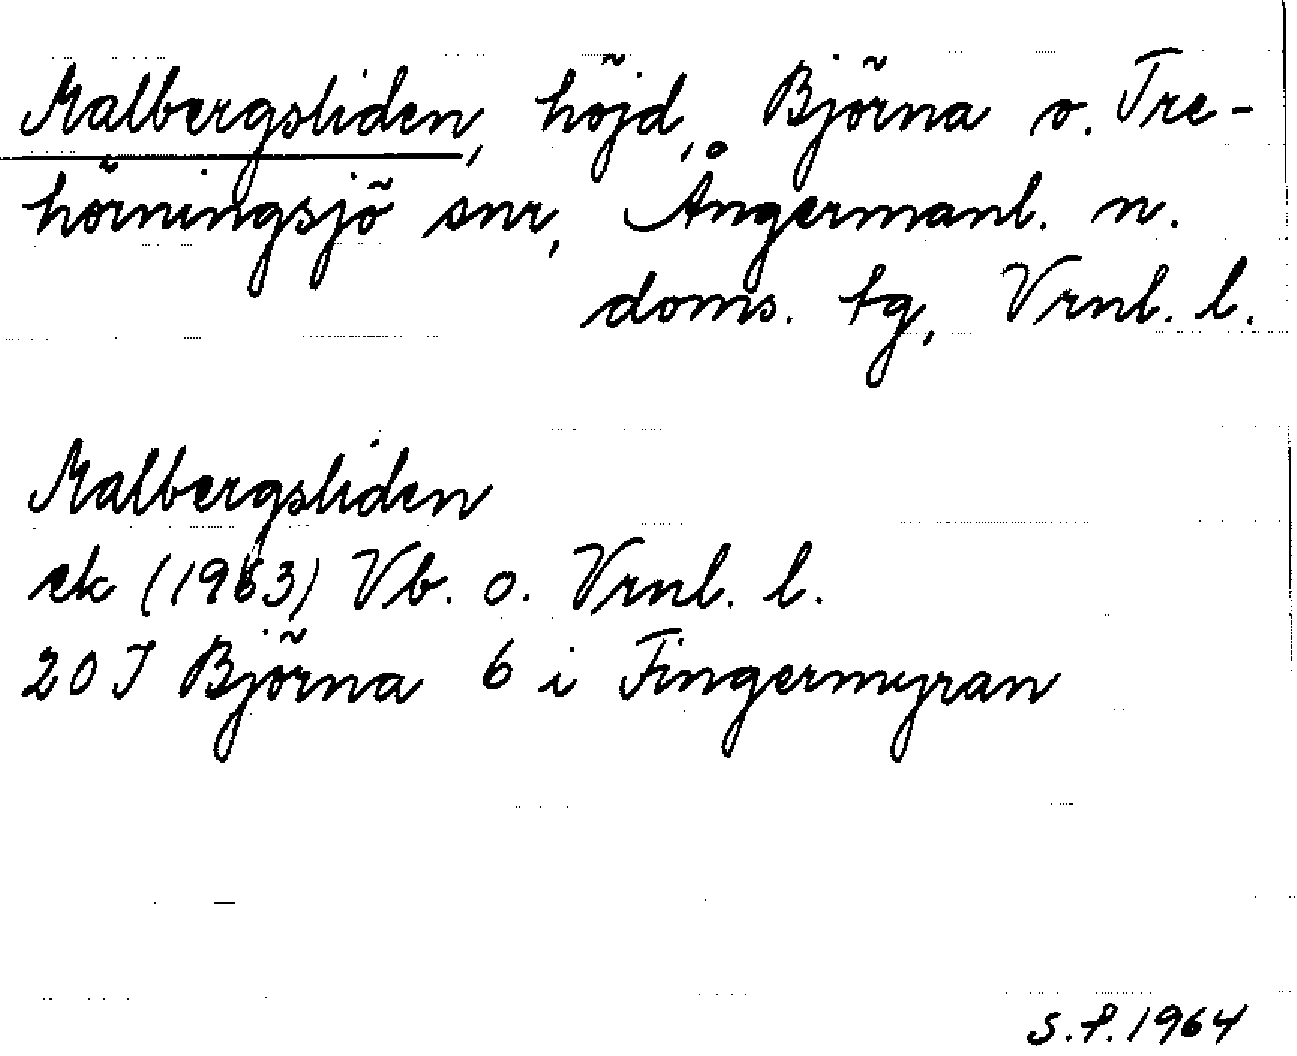 Malbergsliden, höjd, Björna o. Tre-
hörningsjö snr, Ångermanl. n.
doms. tg, Vrnl. l.
Malbergsliden
ek (1963) Vb. o. Vrnl. l.
20 J Björna 6 i Fingermyran
S.F. 1964